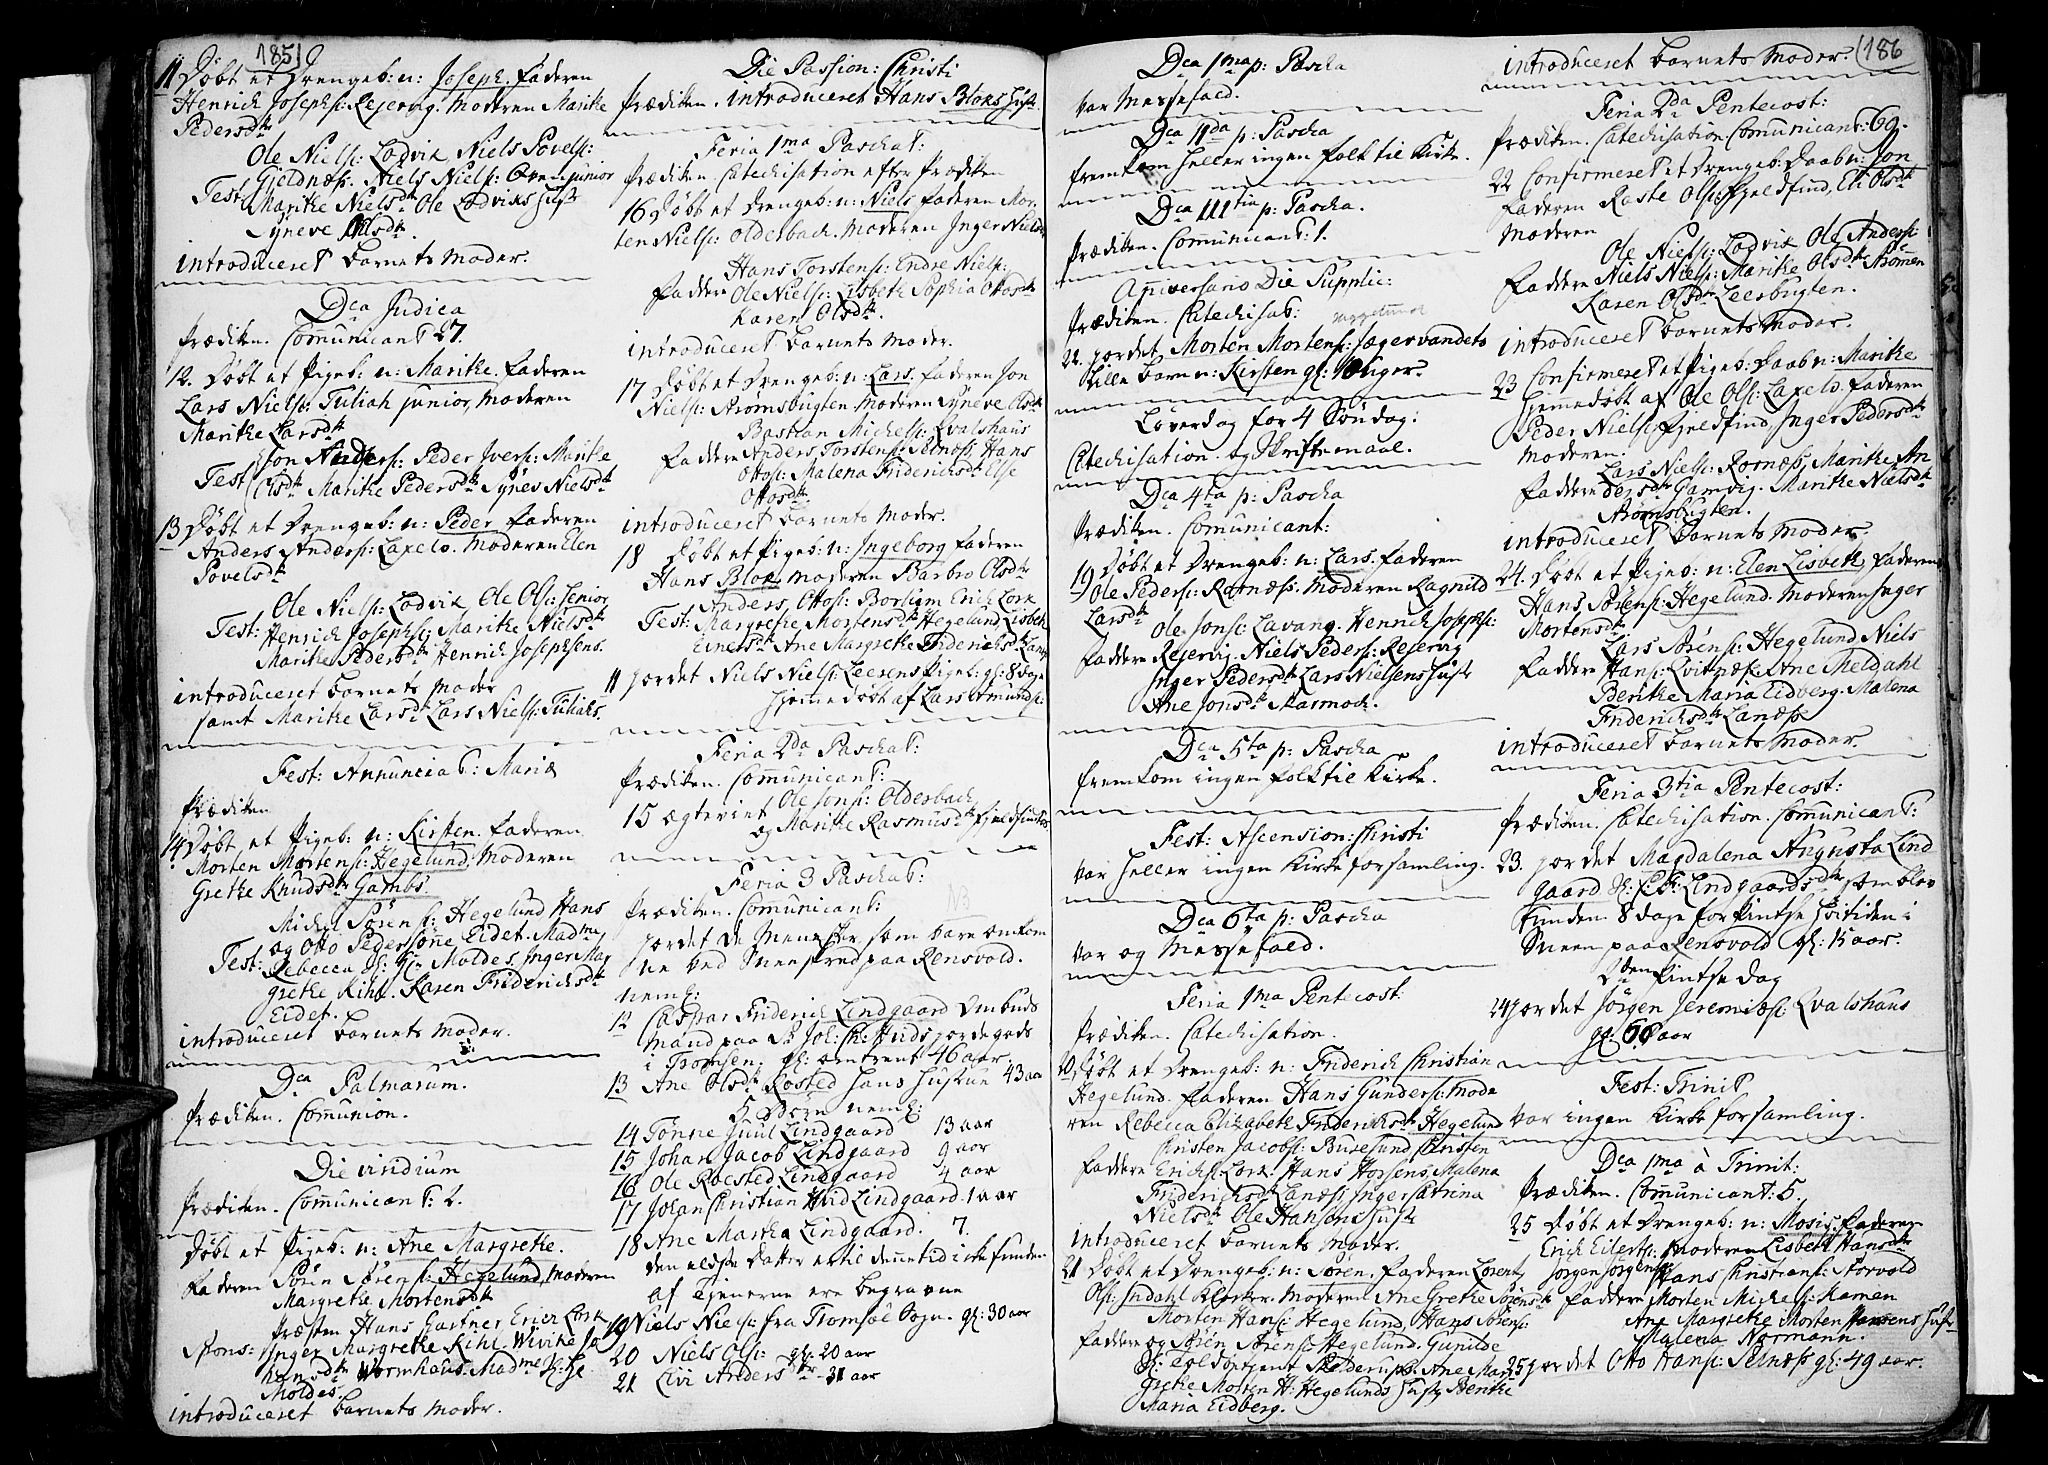 185
11 Døbt et Drengeb: n: Joseph. Faderen
Henrich Josephs: Rejervig. Moderen Maritke
Pedersdtr
Ole Niels: Lodvik, Niels Povels:
Gieldnæs. Niels Niels: junior
Test: Maritke Nielsdtr Ole Lodviks Hust
Syneve Olsdtr.
introduceret barnets Moder.
Dca Judica
Prædiken. Comunicant 27.
12. Døbt et Pigeb: n: Maritke. Faderen
Lars Niels: Tuliah junior, Moderen
Maritke Larsdtr
Jon Anders: Peder Ivers: Maritke
Test: Olsdtr Maritke Pedersdtr Synev Nielsdtr
13 Døbt et Drengeb: n: Peder Faderen
Anders Anders: Laxelv. Moderen Elen
Povelsdtr
Ole Niels: Lodvik Ole Ols: Senior
Test: Henrich Josephs: Maritke Nielsdtr
Maritke Pedersdtr Henrich Josephsens.
introduceret barnets Moder
samt Maritke Larsdtr Lars Niels: Tuliahs.
Fest: Annunciat: Mariæ
Prædiken
14 Døbt et Pigeb: n: Kirsten. Faderen
Morten Mortens: Hegelund: Moderen
Gretke Knudsdtr Gambs:
Michel Sørens: Hegelund Hans
og Otto Pedersønne Eidet. Madme
Test: Rebecca Moldes. Inger Mar
gretke Kihl. Karen Fridericksdtr
Eidet.
introduceret barnets Moder.
Dca Palmarum.
Prædiken. Comunion.
Die viridium
Prædiken. Comunicant: 2.
Døbt et Pigeb: n: Ane Margretke.
Faderen Sörin Sørens: Hegelund, Moderen
Margretke Mortensdtr
Præsten Hans Gartner Erick Lork
Spons: Inger Margretke Kihl Wivike
hansdtr Wormhaus Madme
Moldes.
introduceret barnets Moder.
Die Passion: Christi
Prædiken. introduceret Hans Bloks Hust.
Feria 1ma Paschat:
Prædiken. Catechisation efter Prædiken
16 Døbt et Drengeb: n: Niels Faderen Mor-
ten Niels: Oldersbach. Moderen Inger Nielsdtr
Hans Torstens: Endre Niels:
Faddere Ole Niels: Lisbetk Sophia Ottosdtr
Karen Olsdtr.
introduceret barnets Moder.
17 Døbt et Drengeb: n: Lars. Faderen Jon
Niels: Arømsbugten Moderen Syneve Olsdtr
Bastian Michels: Qvalshaus
Faddere Anders Torstens: Selnæss, Hans
Ottos: Malena Friderichsdtr Else
Ottosdtr.
introduceret barnets Moder.
18 Døbt et Pigeb: n: Ingeborg Faderen
Hans Blok, Moderen Barbro Olsdtr
Anders Ottos: Borsiem Erick Lork
Test: Margretke Mortensdtr Hegelund Lisbetk
Einersdtr Ane Margretke Fridericksdtr
11 jordet Niels Niels: Leerens Pigeb: gl: 8 dage
hjemmedøbt af Lars Ormunds:
Feria 2da Paschat:
Prædiken. Comunicant:
15 ægteviet Ole Jons: Oldersbach
og Maritke Rasmusdtr
Feria 3 Paschat:
NB
Prædiken. Comunicant:
jordet De Menesker som bare omkom
ne ved Sneeskred paa Rensvold.
neml:
12 Caspar Friderich Lindgaard Ombuds
mand paa Sr Joh: Ch: Hvids jordegods
i Tromsen. gl: omtrent 46 aar.
13 Ane Olsdtr Rosted hans Hustrue 43 aar
5 børn neml:
14 Tønne Juul Lindgaard 13 aar
15 Johan Jacob Lindgaard 9 aar
16 Ole Rocsted Lindgaard 4 aar
17 Johan Christian Hvid Lindgaard. 1 aar
18 Ane Martka Lindgaard. 7.
den eldste Datter er til denne tid icke funden
af Tjenerne ere begravne
19 Niels Niels: fra Tromsøe Sogn. gl: 30 aar
20 Niels Ols: gl: 20 aar
21 Livi Andersdtr 31 aar
Dca 1ma p: Pascha
var Messefald.
Dca 11da p: Pascha
fremkom heller ingen folk til Kirke.
Dca 111tia p: Pascha.
Prædiken. Comunicant: 1.
Aniversario Die Supplic:
Prædiken. Catechisat:
22. jordet Morten Mortens: Jægervandets
Lille barn n: Kirsten gl: Uger.
Løverdag for 4 Søndag:
Catechisation og Skriftemaal.
Dca 4ta p: Pascha
Prædiken. Comunicant:
19 Døbt et Drengeb: n: Lars. Faderen
Ole Peders: Rornæss. Moderen Ragnild
Larsdtr
Ole Jons: Lavang. Henrich Josephs:
Faddere Rejervig. Niels Peders: Rejervig
Inger Pedersdtr Lars Nielsens Hust
Ane Jonsdtr Skarmoch.
Dca 5ta p: Pascha
fremkom ingen folk til Kirke.
Fest: Ascension: Christi
var heller ingen Kirkeforsamling.
Dca 6ta p: Pascha
var og Messefald.
Feria 1ma Pentecost:
Prædiken. Catechisation.
20 Døbt et Drengeb: n: Friderich Christian
Hegelund. Faderen Hans Gunders: Mode
ren Rebecca Elizabetk Fridericksdtr Hegelund
Christen Jacobs: Buselund Christen
Faddere Ericks: Lork Hans Horsens, Malena
Fridericksdtr Landss, Inger Catrina
Nielsdtr Ole Hansens Hustr
introduceret barnets Moder.
21 Døbt et Drengeb: n: Søren. Faderen Lorents
Ols: Indahl Klokker. Moderen Ane Gretke Sørensdtr
Morten Hans: Hegelund, Hans Sørens:
Faddere og Sörin Sørens: Hegelund. Gunilde
Ane Mar-
gretke Morten H: Hegelunds Hustr Bentke
Maria Eidberg.
186
introduceret barnets Moder.
Feria 2da Pentecost:
Prædiken. Catechisation. Comunicant: 69.
22 Confirmeret et Drengeb: Daab n: Jon
Faderen Raste Ols: Fjeldfind, Eli Olsdtr
Moderen
Ole Niels: Lodvik Ole Anders:
Faddere Niels Niels: Maritke Olsdtr Arømen
Karen Olsdtr Leerbugten.
introduceret barnets Moder.
23 Confirmeret et Pigeb: Daab n: Maritke
hjemmedøbt af Ole Ols: Laxelv. Faderen
Peder Niels: Fjeldfind Inger Pedersdtr
Moderen:
Lars Niels: Rornæss, Maritke An
Faddere dersdtr Gamvig. Maritke Nielsdtr
Arømsbugten.
introduceret barnets Moder.
24. Døbt et Pigeb: n: Elen Lisbetk, Faderen
Hans Sørens: Hegelund. Moderen Inger
Mortensdtr
Lars Sørens: Hegelund Niels
Faddere Hans: Qvitnæs. Ane Meldahl
Bentke Maria Eidberg. Malena
Friderichsdtr Landss
introduceret barnets Moder.
Feria 3tia Pentecost:
Prædiken. Catechisation. Comunicant:
23. jordet Magdalena Augusta Lind
gaard Lindgaardsdtr som blev
funden 8 dage for Pintse Høitiden i
Sneen paa Rensvold gl: 15 aar.
2den Pintse dag
24 jordet Jörgen Jeremiæs: Qvalshaus
gl: 60 aar
Fest: Trinit
var ingen Kirkeforsamling.
Dca 1ma à Trinit:
Prædiken. Comunicant: 5.
25 Døbt et Drengeb: n: Mosis, Faderen
Erick Eilerts: Moderen Lisbetk Hansdtr
Jørgen Jørgens: Hans Christians: Storvold
Faddere Morten Michels: Kamen
Ane Margretke Morten Hansens Hust
Malena Normann.
25 jordet Otto Hans: Selnæss gl: 49 aar.